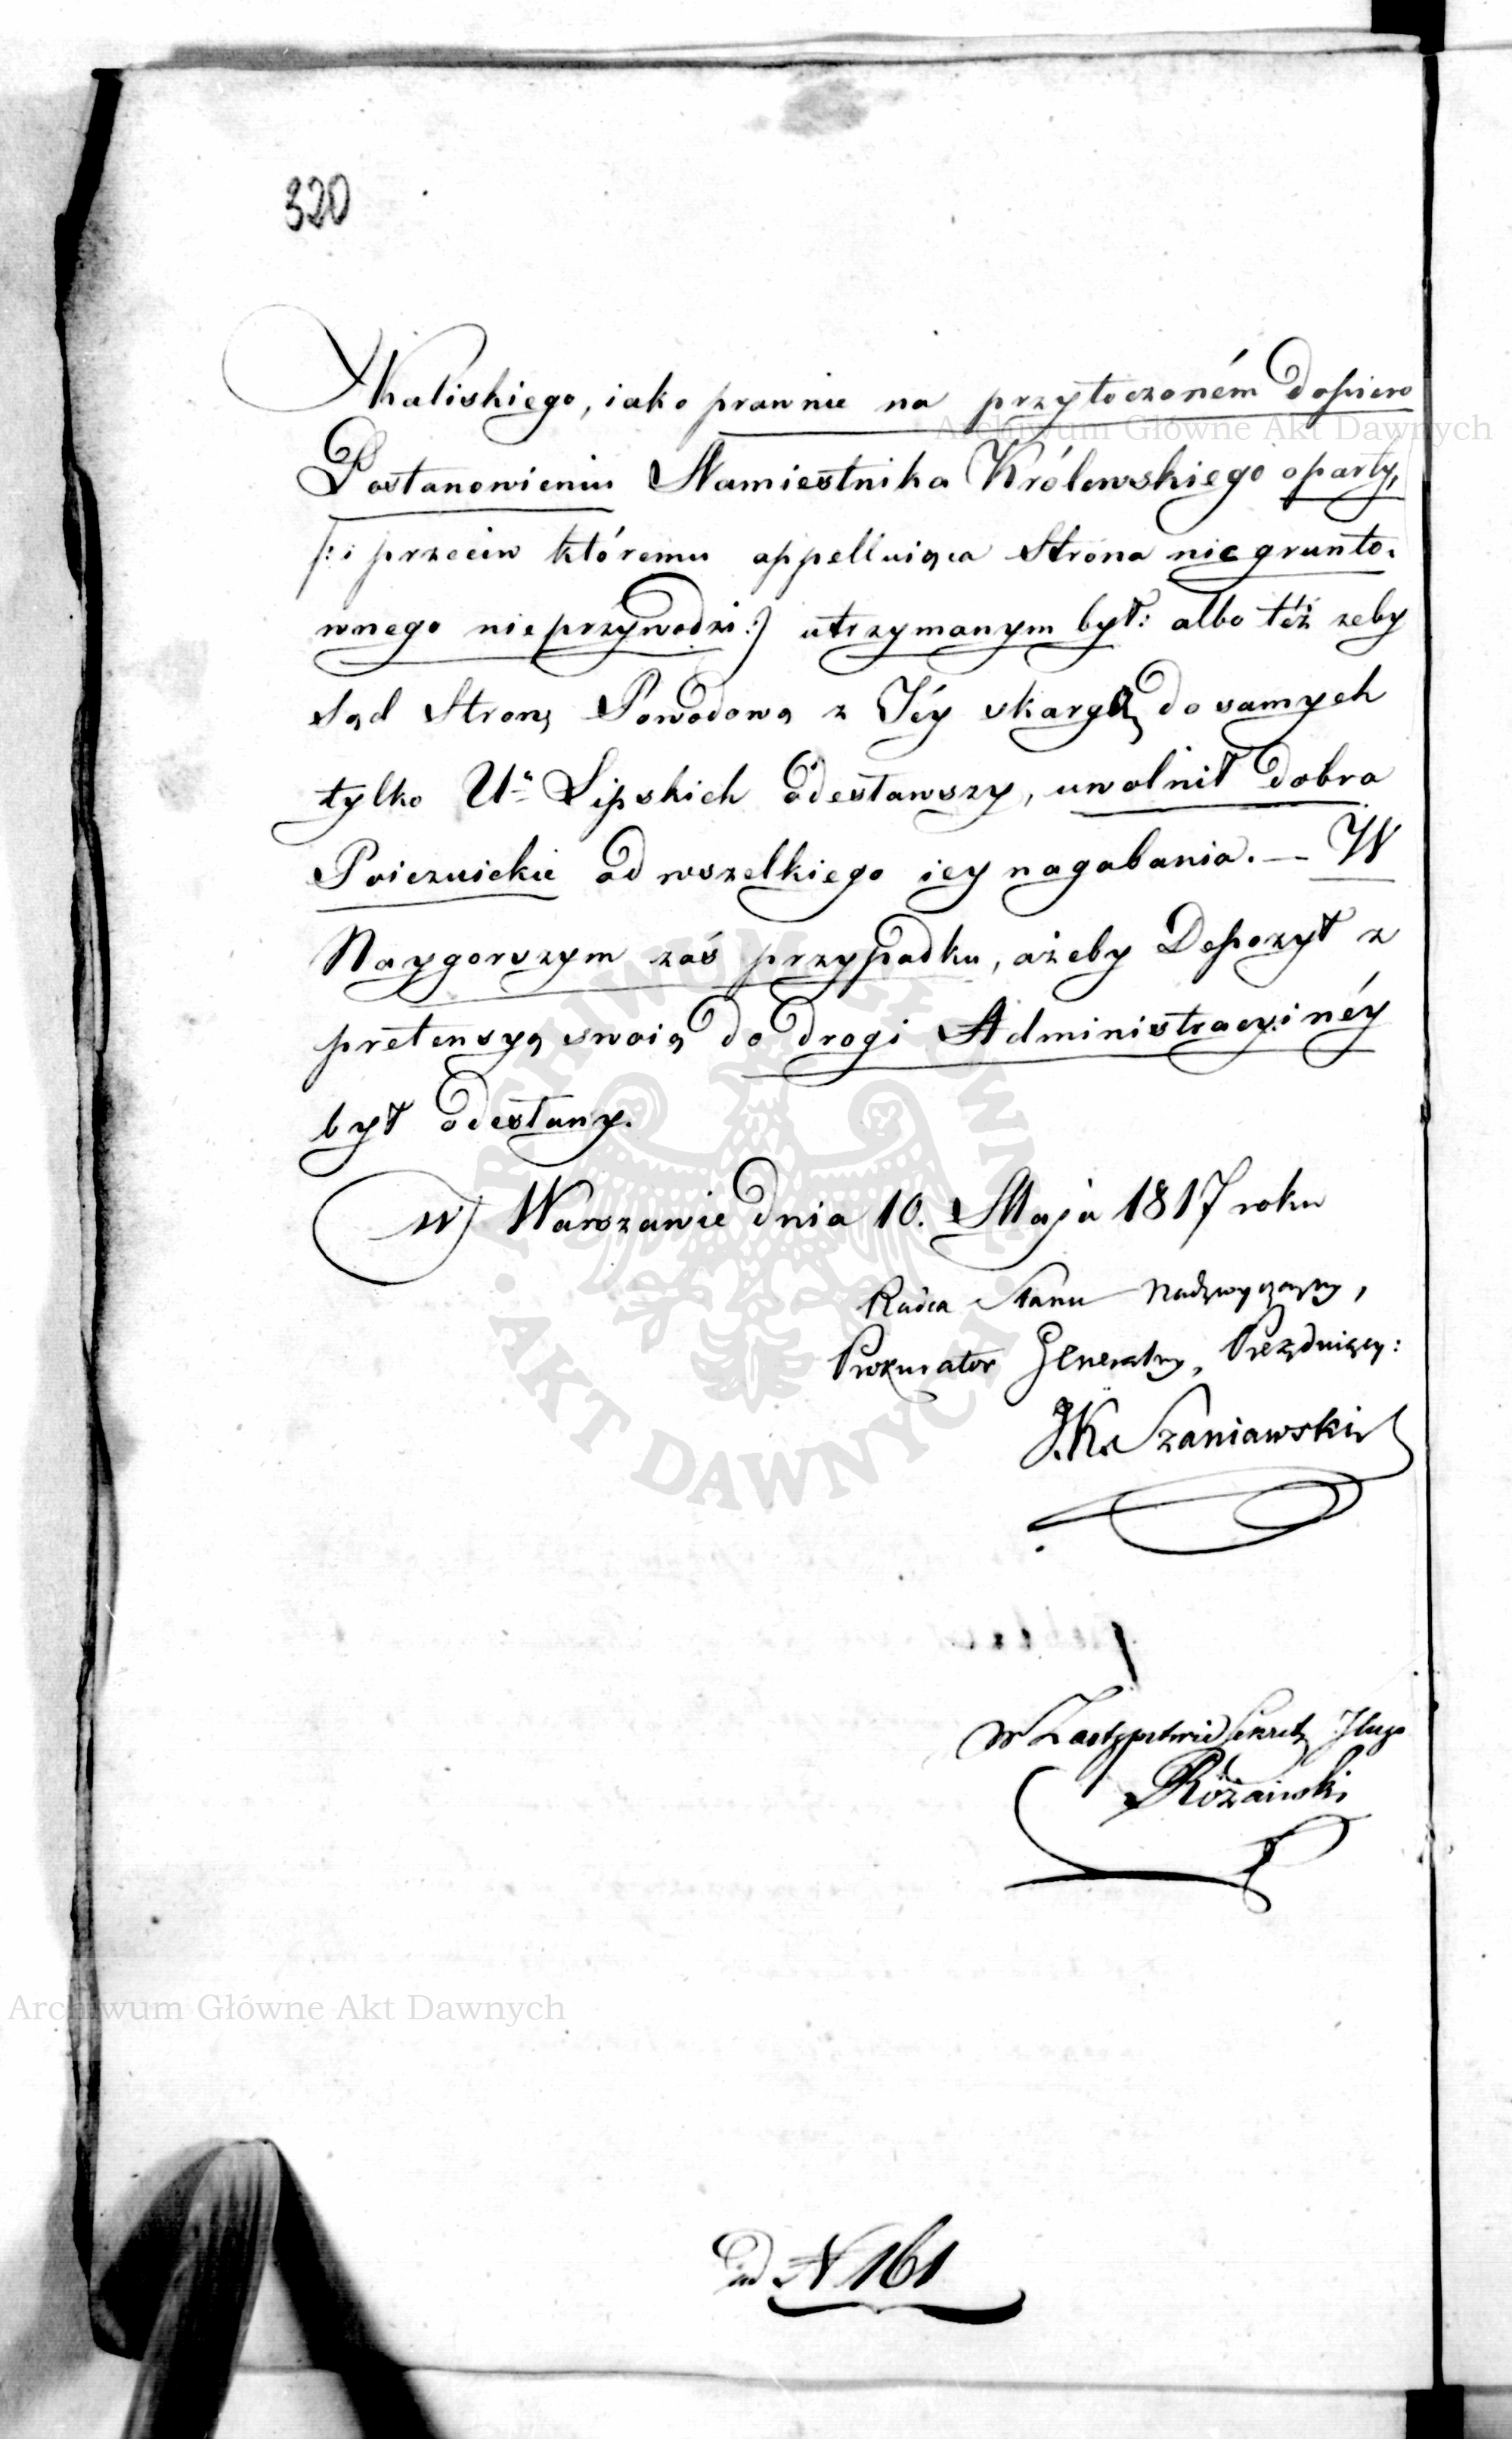 320
Kaliskiego, iako prawnie na przytoczoném dopiero
Postanowieniu Namiestnika Królewskiego oparty,
/: i przeciw któremu appelluiąca Strona nic grunto-
wnego nieprzywodzi :/ utrzymanym był: albo téż żeby
Sąd Stronę Powodową z Jéy skargą do samych
tylko Ur Lipskich odesławszy, uwolnił dobra
Poiezuickie od wszelkiego iey nagabania. — W
Naygorszym zaś przypadku, ażeby Depozyt z
pretensyą swoią do drogi Administracyinéy
był odesłany.
W Warszawie dnia 10. Maja 1817 roku
Radca Stanu Nadzwyczayny,
Prokurator Generalny, Prezyduiący:
J.K. Szaniawski
W Zastępstwie Sekret
Różański
ad N 161
Archiwum Główne Akt Dawnych
ARCHIWUM GŁÓWNE · AKT DAWNYCH ·
Archiwum Główne Akt Dawnych